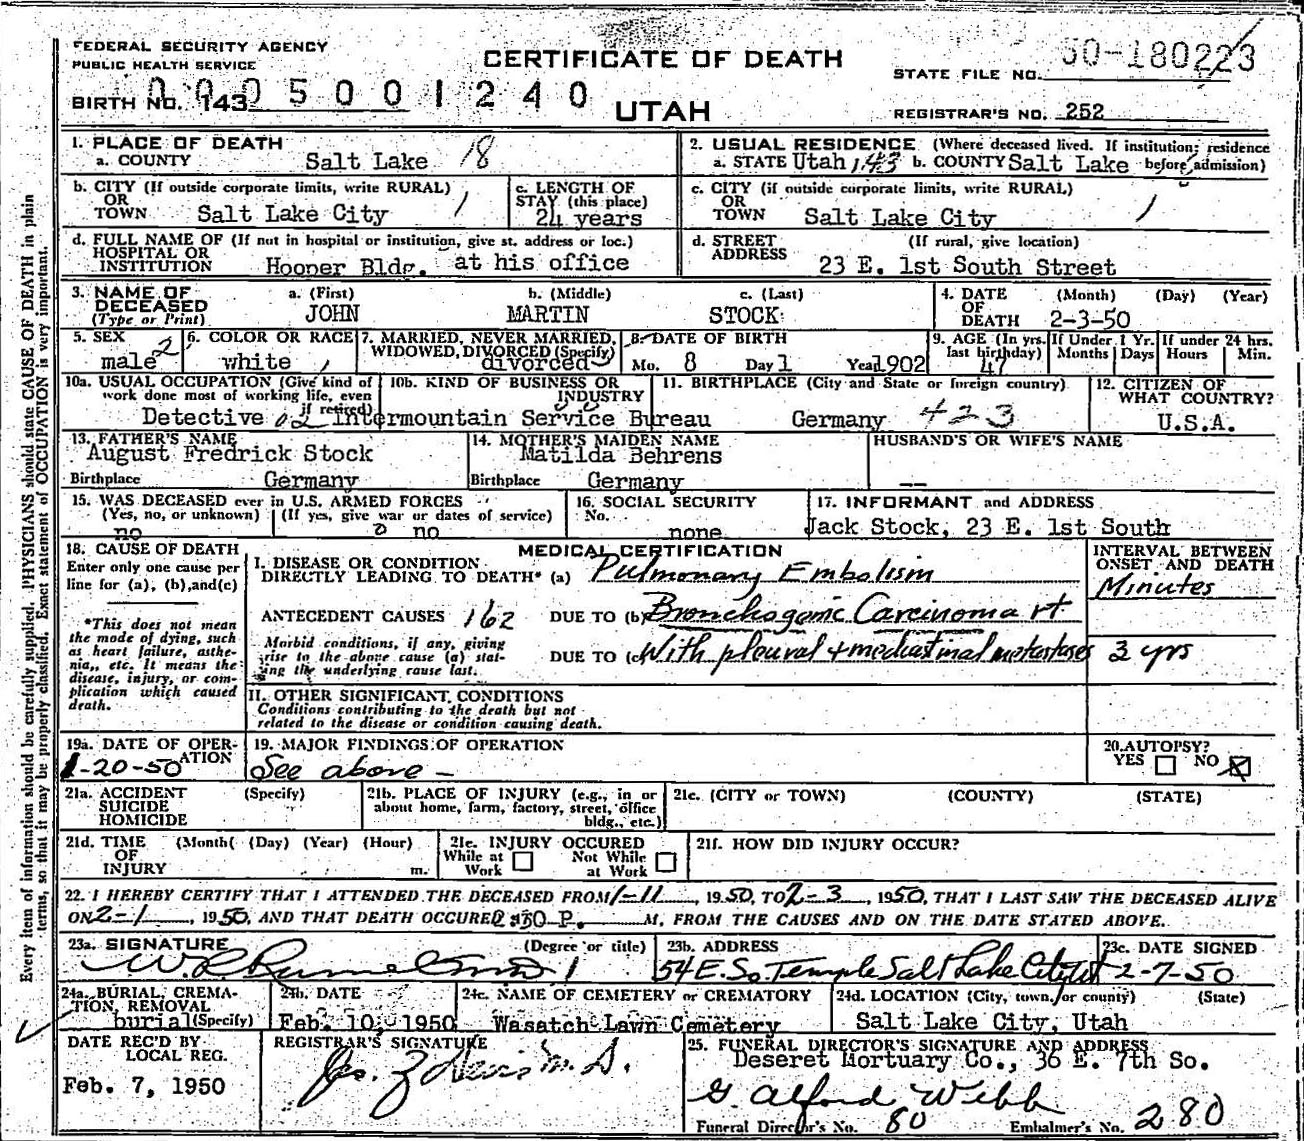 FEDERAL SECURITY AGENCY
PUBLIC HEALTH SERVICE
CERTIFICATE OF DEATH
UTAH
STATE FILE NO. 50-180223
BIRTH NO. 143
0005001240
REGISTRAR'S NO. 252
Every item of information should be carefully supplied. PHYSICIANS should state CAUSE OF DEATH in plain
terms, so that it may be properly classified. Exact statement of OCCUPATION is very important.
1. PLACE OF DEATH
a. COUNTY Salt Lake 18
2. USUAL RESIDENCE (Where deceased lived. If institution; residence
a. STATE Utah 143 b. COUNTY Salt Lake before admission)
b. CITY (If outside corporate limits, write RURAL)
OR
TOWN Salt Lake City 1
c. LENGTH OF
STAY (this place)
24 years
c. CITY (if outside corporate limits, write RURAL)
OR
TOWN Salt Lake City 1
d. FULL NAME OF (If not in hospital or institution, give st. address or loc.)
HOSPITAL OR
INSTITUTION Hooper Bldg. at his office
d. STREET (If rural, give location)
ADDRESS 23 E. 1st South Street
3. NAME OF a. (First) b. (Middle) c. (Last)
DECEASED JOHN MARTIN STOCK
(Type or Print)
4. DATE (Month) (Day) (Year)
OF
DEATH 2-3-50
5. SEX
male 2
6. COLOR OR RACE
white 1
7. MARRIED, NEVER MARRIED,
WIDOWED, DIVORCED (Specify)
divorced
8. DATE OF BIRTH
Mo. 8 Day 1 Year 1902
9. AGE (In yrs. last birthday) 47
If Under 1 Yr. Months Days
If under 24 hrs. Hours Min.
10a. USUAL OCCUPATION (Give kind of
work done most of working life, even
if retired)
Detective 02
10b. KIND OF BUSINESS OR
INDUSTRY
Intermountain Service Bureau
11. BIRTHPLACE (City and State or foreign country)
Germany 423
12. CITIZEN OF
WHAT COUNTRY?
U.S.A.
13. FATHER'S NAME
August Fredrick Stock
Birthplace Germany
14. MOTHER'S MAIDEN NAME
Matilda Behrens
Birthplace Germany
HUSBAND'S OR WIFE'S NAME
--
15. WAS DECEASED ever in U.S. ARMED FORCES
(Yes, no, or unknown) (If yes, give war or dates of service)
no 0 no
16. SOCIAL SECURITY
No. none
17. INFORMANT and ADDRESS
Jack Stock, 23 E. 1st South
18. CAUSE OF DEATH
Enter only one cause per
line for (a), (b), and (c)
*This does not mean
the mode of dying, such
as heart failure, asthe-
nia, etc. It means the
disease, injury, or com-
plication which caused
death.
MEDICAL CERTIFICATION
I. DISEASE OR CONDITION
DIRECTLY LEADING TO DEATH* (a) Pulmonary Embolism
ANTECEDENT CAUSES 162 DUE TO (b) Bronchogenic Carcinoma rt
Morbid conditions, if any, giving
rise to the above cause (a) stat-
ing the underlying cause last.
DUE TO (c) With pleural + mediastinal metastases
INTERVAL BETWEEN
ONSET AND DEATH
Minutes
3 yrs
II. OTHER SIGNIFICANT CONDITIONS
Conditions contributing to the death but not
related to the disease or condition causing death.
19a. DATE OF OPER-
ATION
1-20-50
19. MAJOR FINDINGS OF OPERATION
See above -
20. AUTOPSY?
YES NO X
21a. ACCIDENT (Specify)
SUICIDE
HOMICIDE
21b. PLACE OF INJURY (e.g., in or
about home, farm, factory, street, office
bldg., etc.)
21c. (CITY or TOWN) (COUNTY) (STATE)
21d. TIME (Month( (Day) (Year) (Hour)
OF
INJURY m.
21e. INJURY OCCURED
While at Work Not While at Work
21f. HOW DID INJURY OCCUR?
22. I HEREBY CERTIFY THAT I ATTENDED THE DECEASED FROM 1-11, 1950, TO 2-3, 1950, THAT I LAST SAW THE DECEASED ALIVE
ON 2-1, 1950, AND THAT DEATH OCCURED 2:30 P. M, FROM THE CAUSES AND ON THE DATE STATED ABOVE.
23a. SIGNATURE (Degree or title)
23b. ADDRESS
54 E. So. Temple Salt Lake City Ut
23c. DATE SIGNED
2-7-50
24a. BURIAL, CREMA-
TION, REMOVAL
burial (Specify)
24b. DATE
Feb. 10, 1950
24c. NAME OF CEMETERY or CREMATORY
Wasatch Lawn Cemetery
24d. LOCATION (City, town, or county) (State)
Salt Lake City, Utah
DATE REC'D BY
LOCAL REG.
Feb. 7, 1950
REGISTRAR'S SIGNATURE
25. FUNERAL DIRECTOR'S SIGNATURE AND ADDRESS
Deseret Mortuary Co., 36 E. 7th So.
G. Alford Webb
Funeral Director's No. 80 Embalmer's No. 280